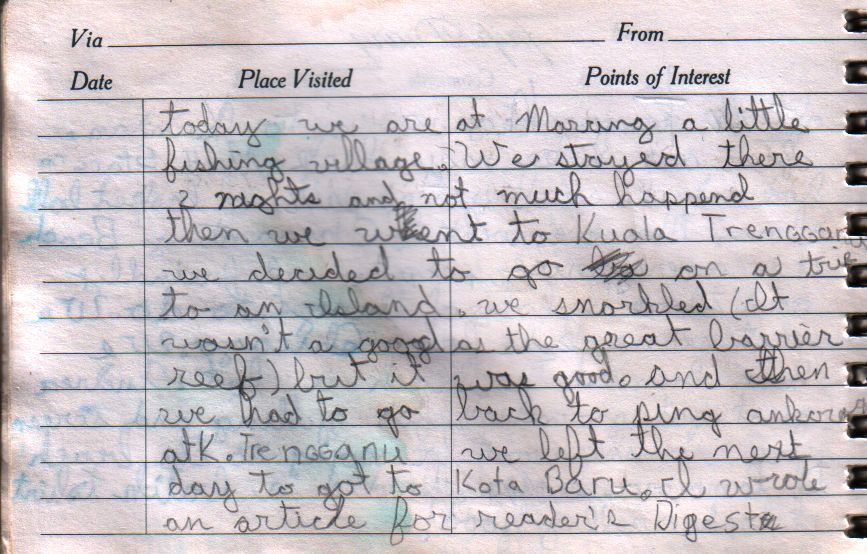 Via From
Date Place Visited Points of Interest
today we are at Marang a little
fishing village. We stayed there
2 nights and not much happend
then we went to Kuala Trengganu
we decided to go on a trip
to an Island. we snorkled (It
wasn't a good as the great barrier
reef) but it was good. and then
we had to go back to ping ankorage
at K. Trengganu we left the next
day to got to Kota Baru. I wrote
an article for reader's Digest